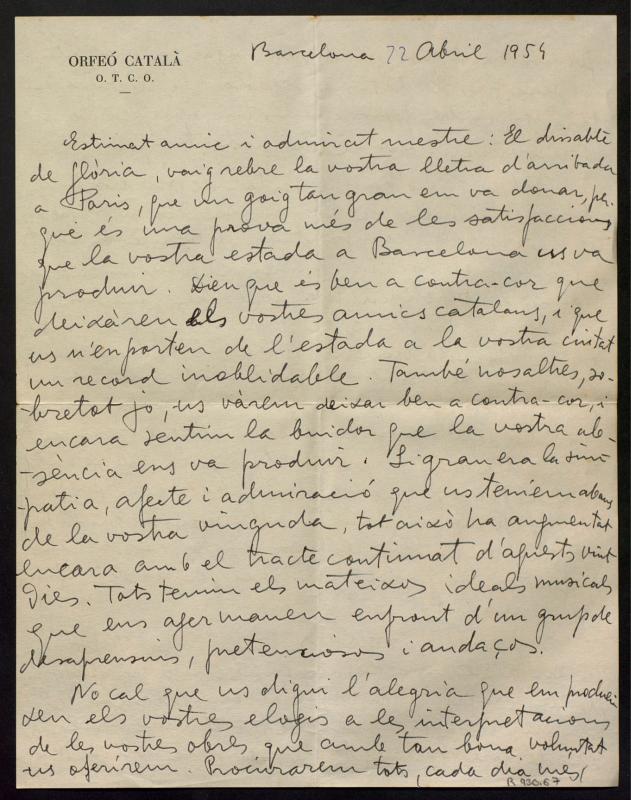 ORFEÓ CATALÀ
O. T. C. O.
Barcelona 22 Abril 1954
Estimat amic i admirat mestre: El dissabte
de glòria, vaig rebre la vostra lletra d'arribada
a Paris, que un goig tan gran em va donar, per-
què és una prova més de les satisfaccions
que la vostra estada a Barcelona us va
produir. Dieu que és ben a contra-cor que
deixàreu els vostres amics catalans, i que
us n'enporteu de l'estada a la vostra ciutat
un record inoblidable. També nosaltres, so-
bretot jo, us vàrem deixar ben a contra-cor, i
encara sentim la buidor que la vostra ab-
-sència ens va produir. Si gran era la sim-
patia, afecte i admiració que us teniem abans
de la vostra vinguda, tot això ha augmentat
encara amb el tracte continuat d'aquests vint
dies. Tots tenim els mateixos ideals musicals
que ens agermanen enfront d'un grup de
desaprensius, pretenciosos i andaços.
No cal que us digui l'alegria que em produei-
xen els vostres elogis a les interpretacions
de les vostres obres que amb tan bona voluntat
us oferirem. Procurarem tots, cada dia més,
R 930.67